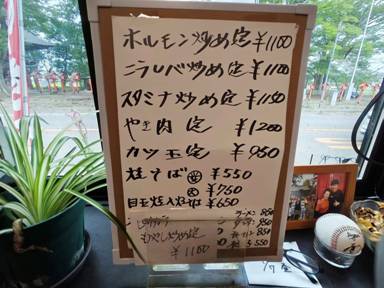 ホルモン炒め定 ¥1100
ニラレバ炒め定 ¥1100
スタミナ炒め定 ¥1150
やき肉 定 ¥1200
カツ玉定 ¥950
焼そば 並 ¥550
大 ¥750
目玉 ¥650
もやし炒め定
¥1100
ラーメン 850
850
850
550